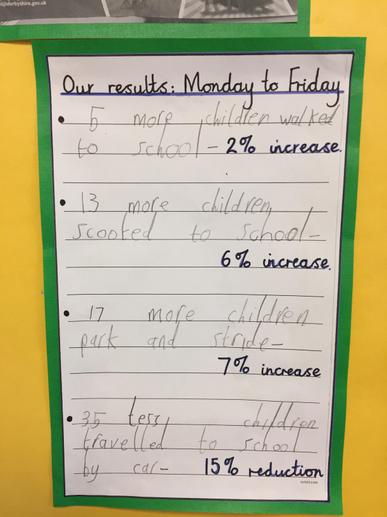 Our results: Monday to Friday
• 5 more children walked
to school - 2% increase.
• 13 more children
scooted to school -
6% increase.
• 17 more children
park and stride -
7% increase
• 35 less children
travelled to school
by car - 15% reduction